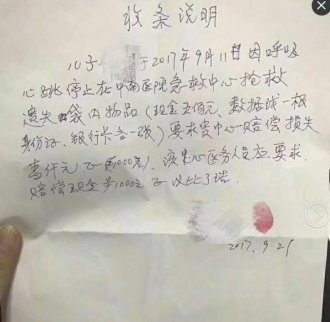 收条说明
儿子 于2017年9月11日因呼吸
心跳停止在中南医院急救中心抢救
遗失袋内物品(现金五佰元、数据线一根
身份证、银行卡各一张)要求贵中心赔偿损失
壹仟元正(1000元)、该中心医务人员应要求
赔偿现金 1000元正 以此了结
2017.9.29